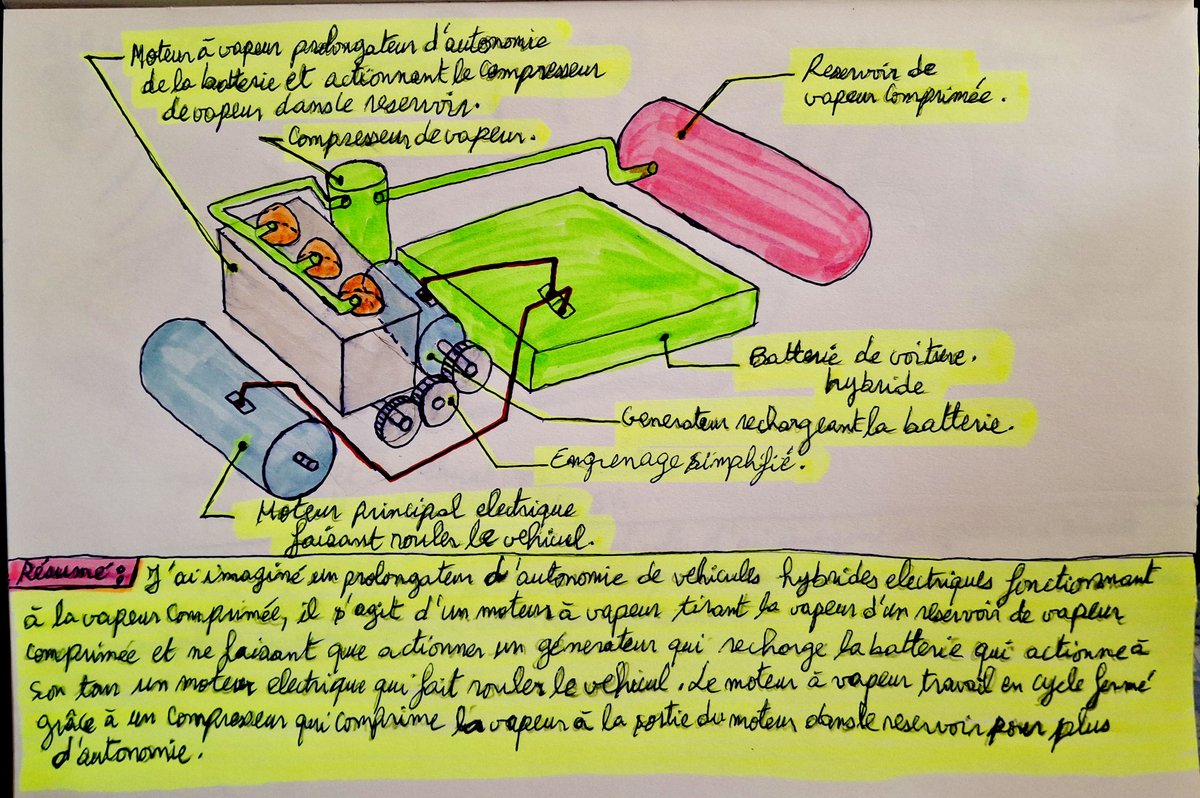 Moteur à vapeur prolongateur d'autonomie
de la batterie et actionnant le compresseur
de vapeur dans le reservoir.
Compresseur de vapeur.
Reservoir de
vapeur comprimée.
Batterie de voiture.
hybride
Generateur rechargeant la batterie.
Engrenage simplifié.
Moteur principal electrique
faisant rouler le vehicul.
Résumé: J'ai imaginé un prolongateur d'autonomie de vehicules hybrides electriques fonctionnant
à la vapeur comprimée, il s'agit d'un moteur à vapeur tirant la vapeur d'un reservoir de vapeur
comprimée et ne faisant que actionner un générateur qui recharge la batterie qui actionne à
son tour un moteur electrique qui fait rouler le vehicul. Le moteur à vapeur travail en cycle fermé
grâce à un compresseur qui comprime la vapeur à la sortie du moteur dans le reservoir pour plus
d'autonomie.